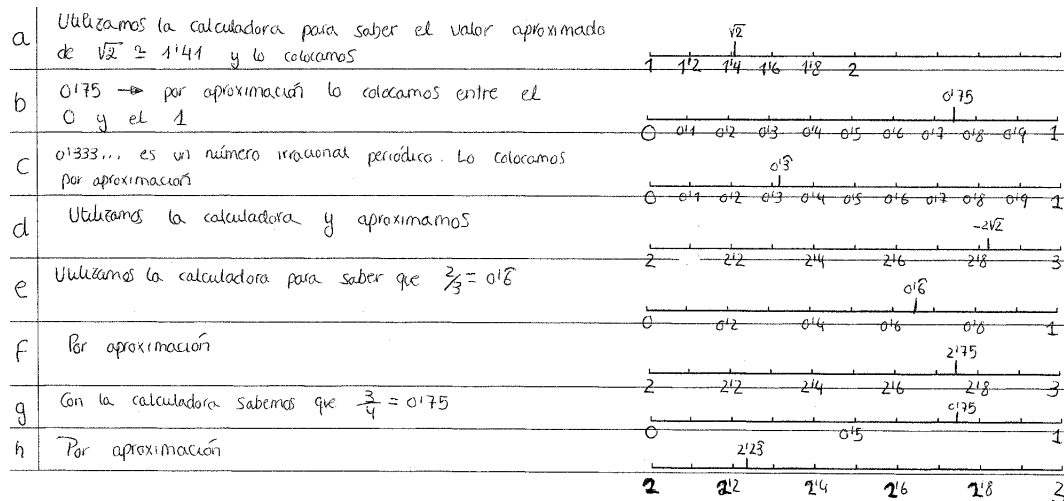 a Utilizamos la calculadora para saber el valor aproximado
de √2 ≃ 1'41 y lo colocamos
√2
1 1'2 1'4 1'6 1'8 2
b 0'75 → por aproximación lo colocamos entre el
0 y el 1
0'75
0 0'1 0'2 0'3 0'4 0'5 0'6 0'7 0'8 0'9 1
c 0'333... es un número irracional periódico. Lo colocamos
por aproximación
0'3̂
0 0'1 0'2 0'3 0'4 0'5 0'6 0'7 0'8 0'9 1
d Utilizamos la calculadora y aproximamos
-2√2
2 2'2 2'4 2'6 2'8 3
e Utilizamos la calculadora para saber que 2/3 = 0'6̂
0'6̂
0 0'2 0'4 0'6 0'8 1
f Por aproximación
2'75
2 2'2 2'4 2'6 2'8 3
g Con la calculadora sabemos que 3/4 = 0'75
0'75
0 0'5 1
h Por aproximación
2'23̂
2 2'2 2'4 2'6 2'8 2